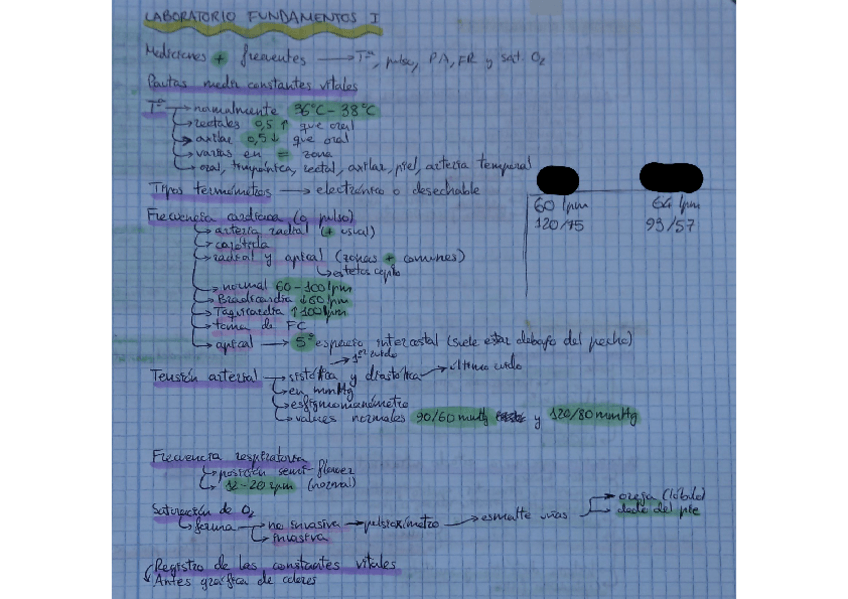 LABORATORIO FUNDAMENTOS I
Mediciones + frecuentes → Tª, pulso, PA, FR y sat. O2
Pautas medir constantes vitales
Tª → normalmente 36ºC - 38ºC
→ rectales 0,5 ↑ que oral
→ axilar 0,5 ↓ que oral
→ varías en = zona
→ oral, timpánica, rectal, axilar, piel, arteria temporal
Tipos termómetros → electrónico o desechable
60 lpm 64 lpm
120/75 93/57
Frecuencia cardiaca (o pulso)
→ arteria radial (+ usual)
→ carótida
→ radial y apical (zonas + comunes)
→ estetoscopio
→ normal 60-100 lpm
→ Bradicardia ↓ 60 lpm
→ Taquicardia ↑ 100 lpm
→ toma de FC
→ apical → 5º espacio intercostal (suele estar debajo del pecho)
→ 1er ruido
Tensión arterial → sistólica y diastólica → último ruido
→ en mmHg
→ esfigmomanómetro
→ valores normales 90/60 mmHg y 120/80 mmHg
Frecuencia respiratoria
→ posición semi-flower
→ 12-20 rpm (normal)
Saturación de O2
→ forma → no invasiva → pulsioxímetro → esmalte uñas → oreja (lóbulo)
→ dedo del pie
→ invasiva
Registro de las constantes vitales
→ Antes gráfica de colores